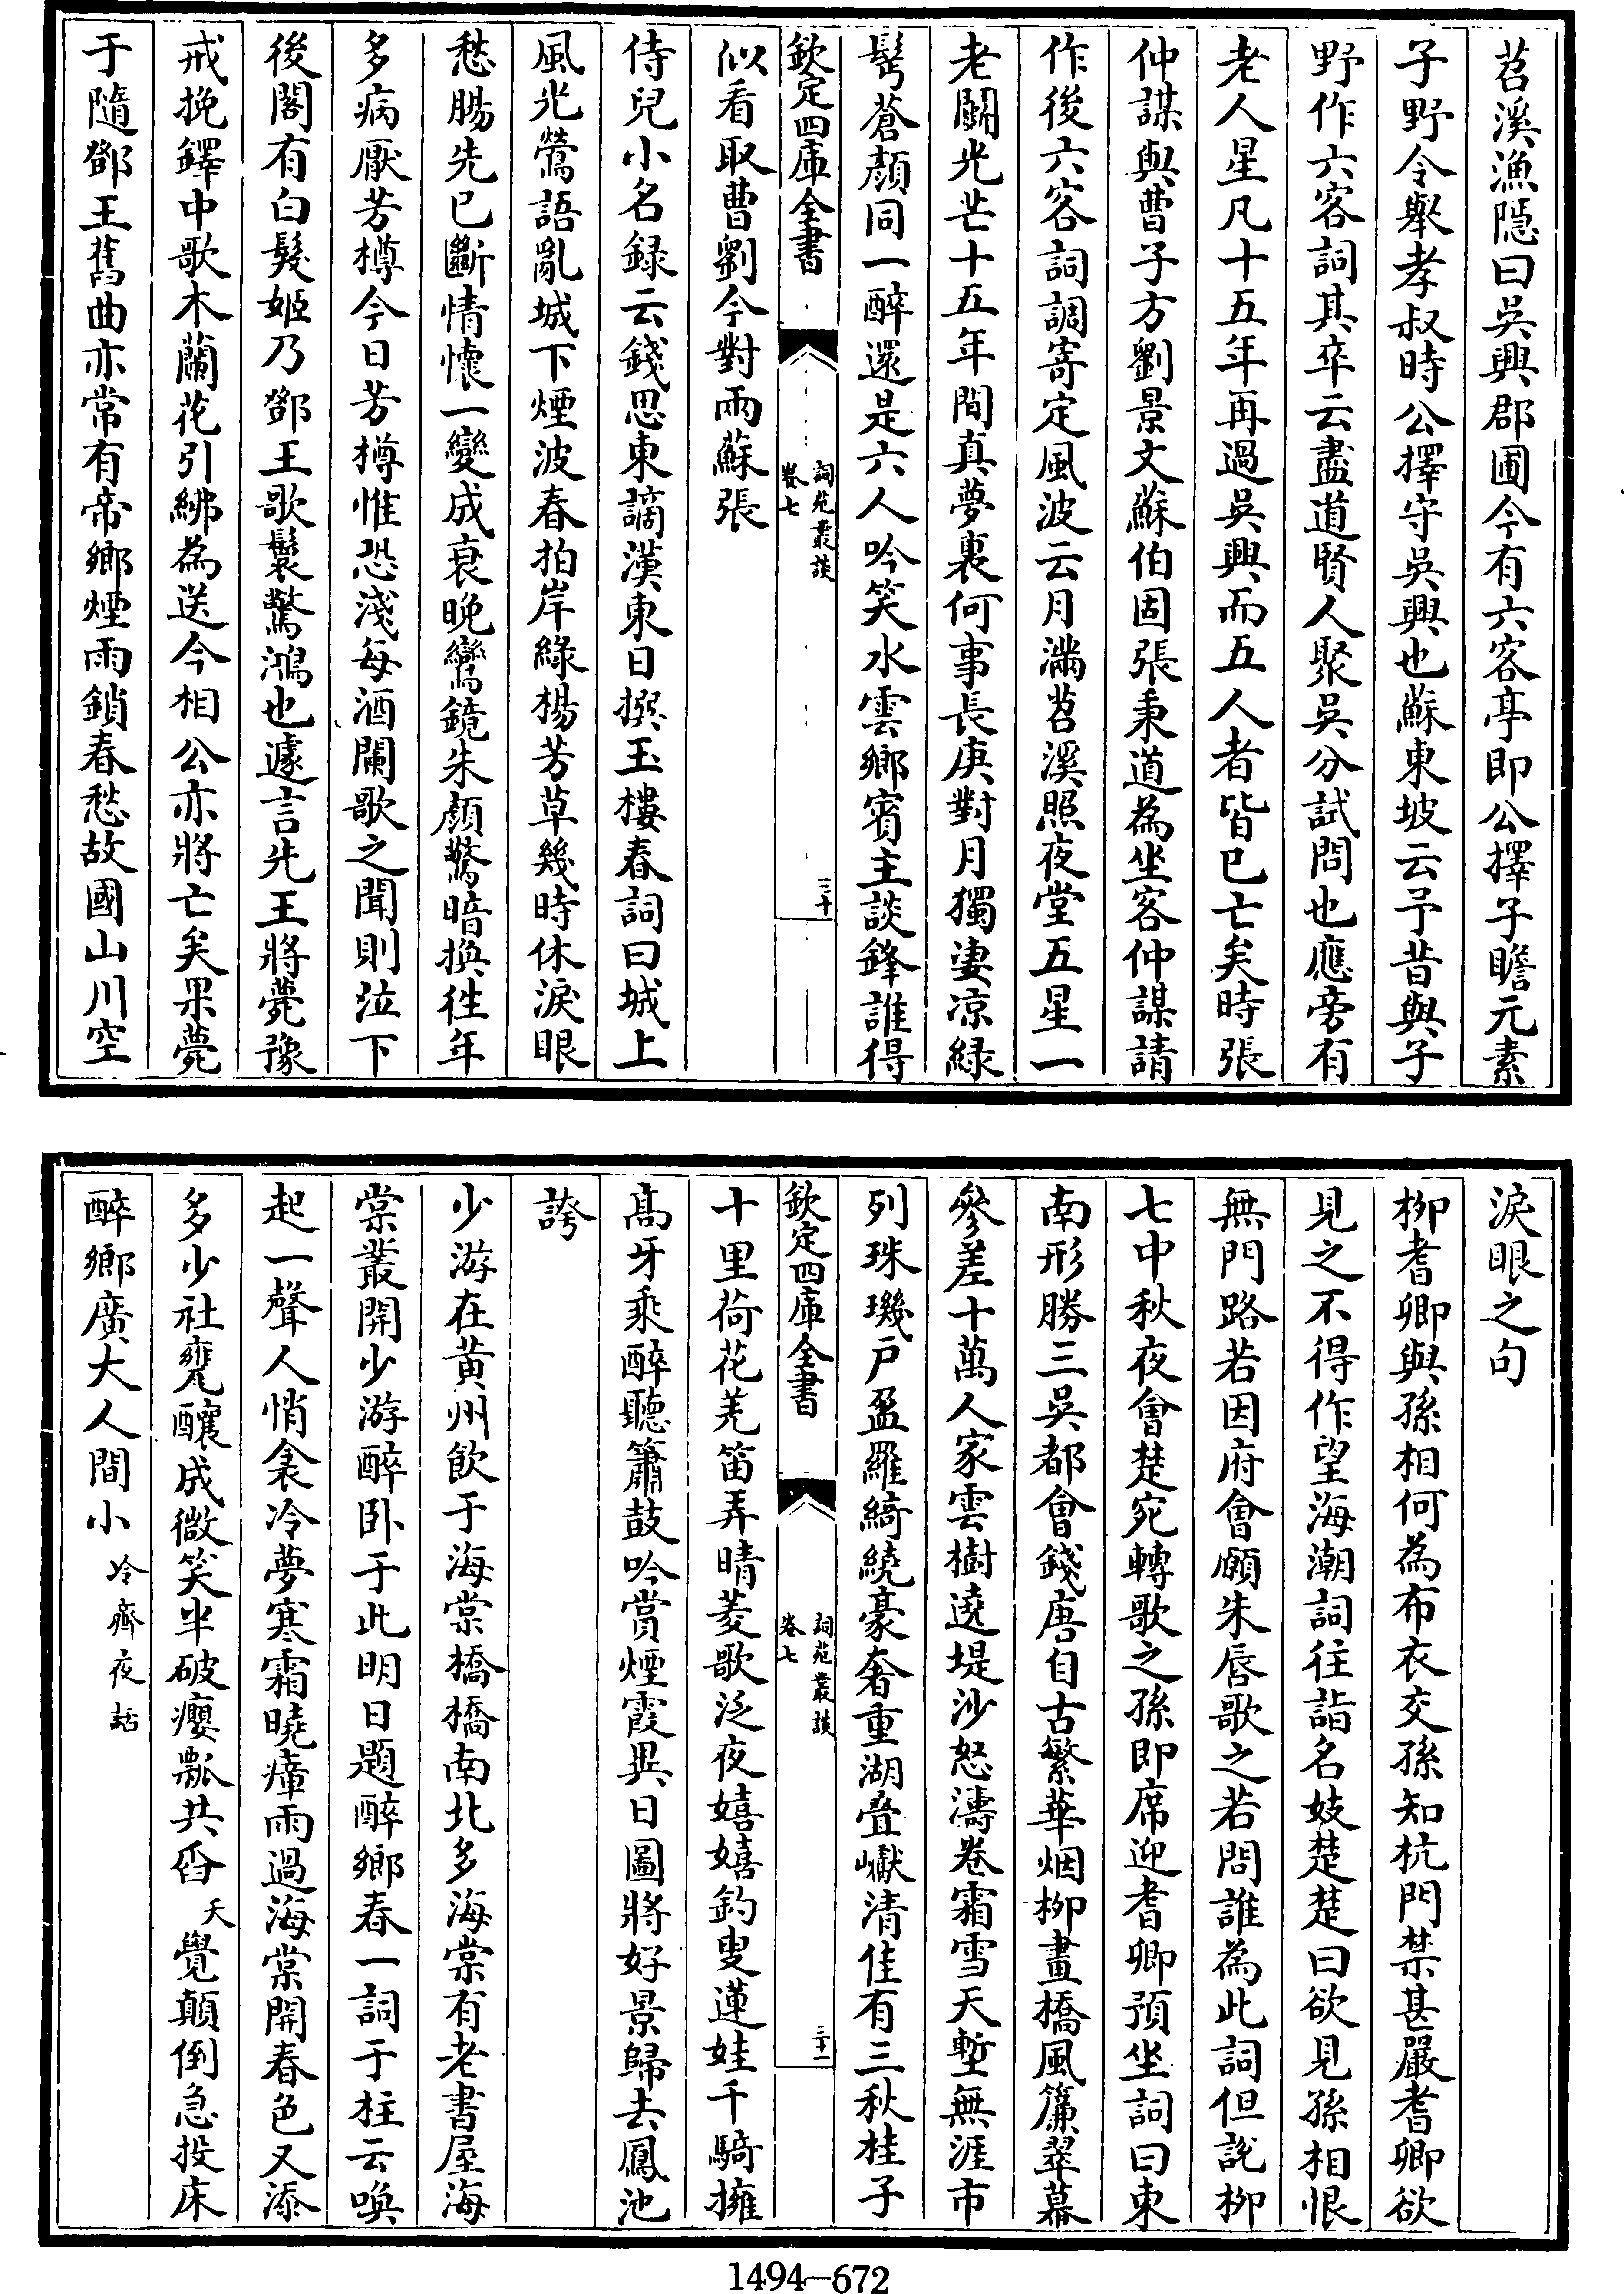 苕溪漁隱曰吳興郡圃今有六客亭即公擇子瞻元素
子野令舉孝叔時公擇守吳興也蘇東坡云予昔與子
野作六客詞其卒云盡道賢人聚吳分試問也應旁有
老人星凡十五年再過吳興而五人者皆已亡矣時張
仲謀與曹子方劉景文蘇伯固張秉道為坐客仲謀請
作後六客詞調寄定風波云月滿苕溪照夜堂五星一
老鬭光芒十五年間真夢裏何事長庚對月獨淒凉緑
髩蒼顏同一醉還是六人吟笑水雲鄉賓主談鋒誰得
欽定四庫全書
詞苑叢談
卷七
三十
似看取曹劉今對兩蘇張
侍兒小名録云錢思東謫漢東日撰玉樓春詞曰城上
風光鶯語亂城下煙波春拍岸綠楊芳草幾時休淚眼
愁腸先已斷情懷一變成衰晚鸞鏡朱顏驚暗換徃年
多病厭芳樽今日芳樽惟恐淺每酒闌歌之聞則泣下
後閣有白髮姬乃鄧王歌鬟驚鴻也遽言先王將薨豫
戒挽鐸中歌木蘭花引紼為送今相公亦將亡矣果薨
于隨鄧王舊曲亦常有帝鄉煙雨鎖春愁故國山川空
淚眼之句
柳耆卿與孫相何為布衣交孫知杭門禁甚嚴耆卿欲
見之不得作望海潮詞往詣名妓楚楚曰欲見孫相恨
無門路若因府會願朱唇歌之若問誰為此詞但説柳
七中秋夜會楚宛轉歌之孫即席迎耆卿預坐詞曰東
南形勝三吳都會錢唐自古繁華烟柳畫橋風簾翠幕
參差十萬人家雲樹遶堤沙怒濤卷霜雪天塹無涯市
列珠璣戶盈羅綺繞豪奢重湖疊巘清佳有三秋桂子
欽定四庫全書
詞苑叢談
卷七
三十一
十里荷花羌笛弄晴菱歌泛夜嬉嬉釣叟蓮娃千騎擁
高牙乘醉聽簫鼓吟賞煙霞異日圖將好景歸去鳳池
誇
少游在黃州飲于海棠橋橋南北多海棠有老書屋海
棠叢開少游醉卧于此明日題醉鄉春一詞于柱云喚
起一聲人悄衾冷夢寒霜曉瘴雨過海棠開春色又添
多少社甕釀成微笑半破癭瓢共舀 夭 覺顛倒急投床
醉鄉廣大人間小 冷齋夜話
1494—672